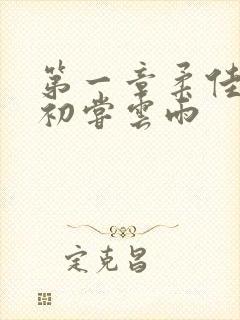 第一章柔佳
初尝雲雨
定克昌